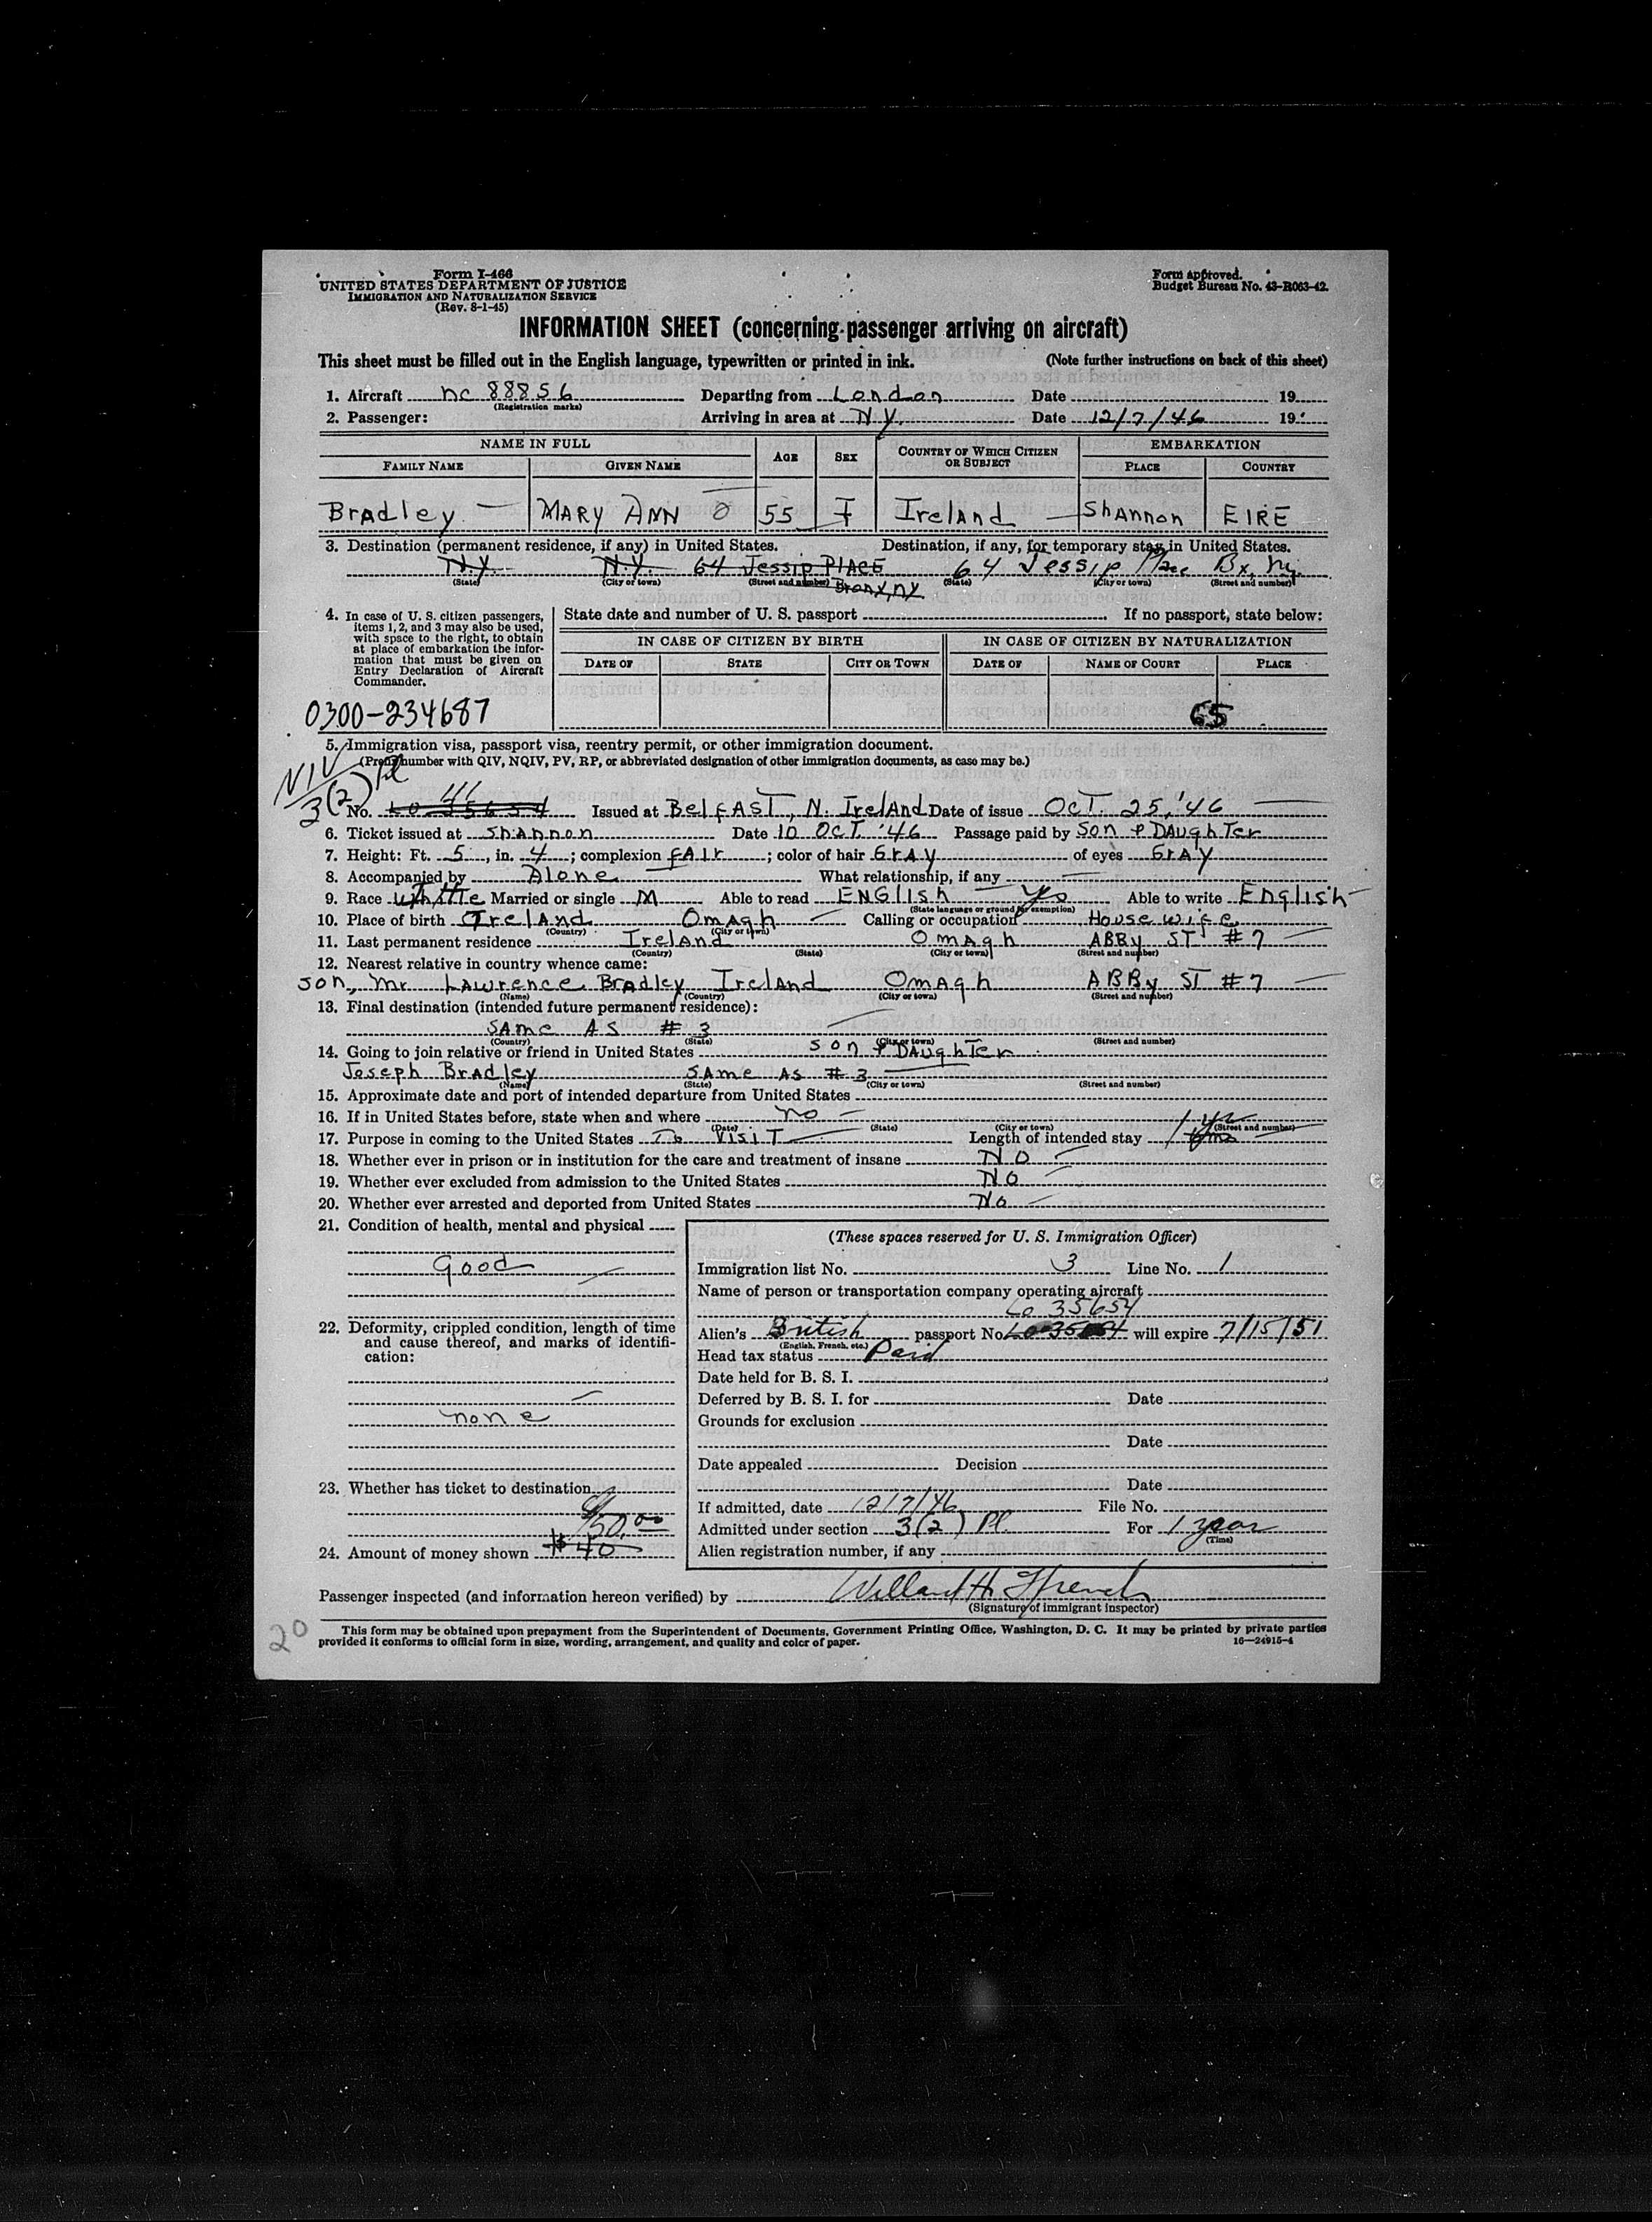 Form I-466
UNITED STATES DEPARTMENT OF JUSTICE
IMMIGRATION AND NATURALIZATION SERVICE
(Rev. 8-1-45)
Form approved.
Budget Bureau No. 43-R063-42.
INFORMATION SHEET (concerning passenger arriving on aircraft)
This sheet must be filled out in the English language, typewritten or printed in ink. (Note further instructions on back of this sheet)
1. Aircraft nc 88856 Departing from London Date 19
(Registration marks)
2. Passenger: Arriving in area at N.Y. Date 12/7/46 19
NAME IN FULL AGE SEX COUNTRY OF WHICH CITIZEN OR SUBJECT EMBARKATION
FAMILY NAME GIVEN NAME PLACE COUNTRY
Bradley MARY ANN 55 F IrelAnd ShAnnon EIRE
3. Destination (permanent residence, if any) in United States. Destination, if any, for temporary stay in United States.
N.Y. N.Y. 64 Jessip PlACE 64 Jessip Place Bx, Ny.
(State) (City or town) (Street and number) (State) (City or town) (Street and number)
Bronx, NY
4. In case of U. S. citizen passengers, items 1, 2, and 3 may also be used, with space to the right, to obtain at place of embarkation the information that must be given on Entry Declaration of Aircraft Commander.
State date and number of U. S. passport If no passport, state below:
IN CASE OF CITIZEN BY BIRTH IN CASE OF CITIZEN BY NATURALIZATION
DATE OF STATE CITY OR TOWN DATE OF NAME OF COURT PLACE
0300-234687 65
5. Immigration visa, passport visa, reentry permit, or other immigration document.
(Prefix number with QIV, NQIV, PV, RP, or abbreviated designation of other immigration documents, as case may be.)
NIV
3(2) Pl
No. Lo 35654 Issued at BelFAST, N. IrelAnd Date of issue OCT. 25, '46
6. Ticket issued at ShAnnon Date 10 OCT. '46 Passage paid by Son & DAughTer
7. Height: Ft. 5, in. 4; complexion fAIr; color of hair GrAy of eyes GrAy
8. Accompanied by Alone What relationship, if any
9. Race White Married or single M Able to read ENGlIsh Yes Able to write EnglIsh
(State language or ground for exemption)
10. Place of birth IrelAnd OmAgh Calling or occupation House wife
(Country) (City or town)
11. Last permanent residence IrelAnd OmAgh ABBy ST #7
(Country) (State) (City or town) (Street and number)
12. Nearest relative in country whence came:
Son, Mr LAwrence Bradley IrelAnd OmAgh ABBy ST #7
(Name) (Country) (City or town) (Street and number)
13. Final destination (intended future permanent residence):
SAme AS # 3
(Country) (State) (City or town) (Street and number)
14. Going to join relative or friend in United States son & DAughTer
Joseph BrAdley SAme As # 3
(Name) (State) (City or town) (Street and number)
15. Approximate date and port of intended departure from United States
16. If in United States before, state when and where no
(Date) (State) (City or town) (Street and number)
17. Purpose in coming to the United States To VisiT Length of intended stay 1 yr
18. Whether ever in prison or in institution for the care and treatment of insane No
19. Whether ever excluded from admission to the United States No
20. Whether ever arrested and deported from United States No
21. Condition of health, mental and physical
Good
22. Deformity, crippled condition, length of time and cause thereof, and marks of identification:
none
23. Whether has ticket to destination
24. Amount of money shown $40
(These spaces reserved for U. S. Immigration Officer)
Immigration list No. 3 Line No. 1
Name of person or transportation company operating aircraft
Lo 35654
Alien's British passport No. will expire 7/15/51
(English, French, etc.)
Head tax status Paid
Date held for B. S. I.
Deferred by B. S. I. for Date
Grounds for exclusion
Date
Date appealed Decision
Date
If admitted, date 12/7/46 File No.
Admitted under section 3(2) Pl. For 1 year
(Time)
Alien registration number, if any
Passenger inspected (and information hereon verified) by Willard H. French
(Signature of immigrant inspector)
20
This form may be obtained upon prepayment from the Superintendent of Documents, Government Printing Office, Washington, D. C. It may be printed by private parties
provided it conforms to official form in size, wording, arrangement, and quality and color of paper. 16—24915-4